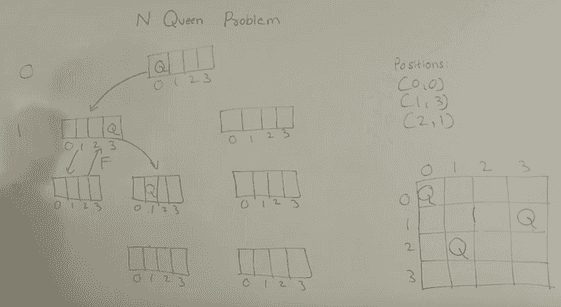 N Queen Problem
0
Q
0 1 2 3
1
Q
0 1 2 3
0 1 2 3
F
0 1 2 3
Q
0 1 2 3
0 1 2 3
0 1 2 3
0 1 2 3
Positions:
(0,0)
(1,3)
(2,1)
0 1 2 3
0 Q
1 Q
2 Q
3